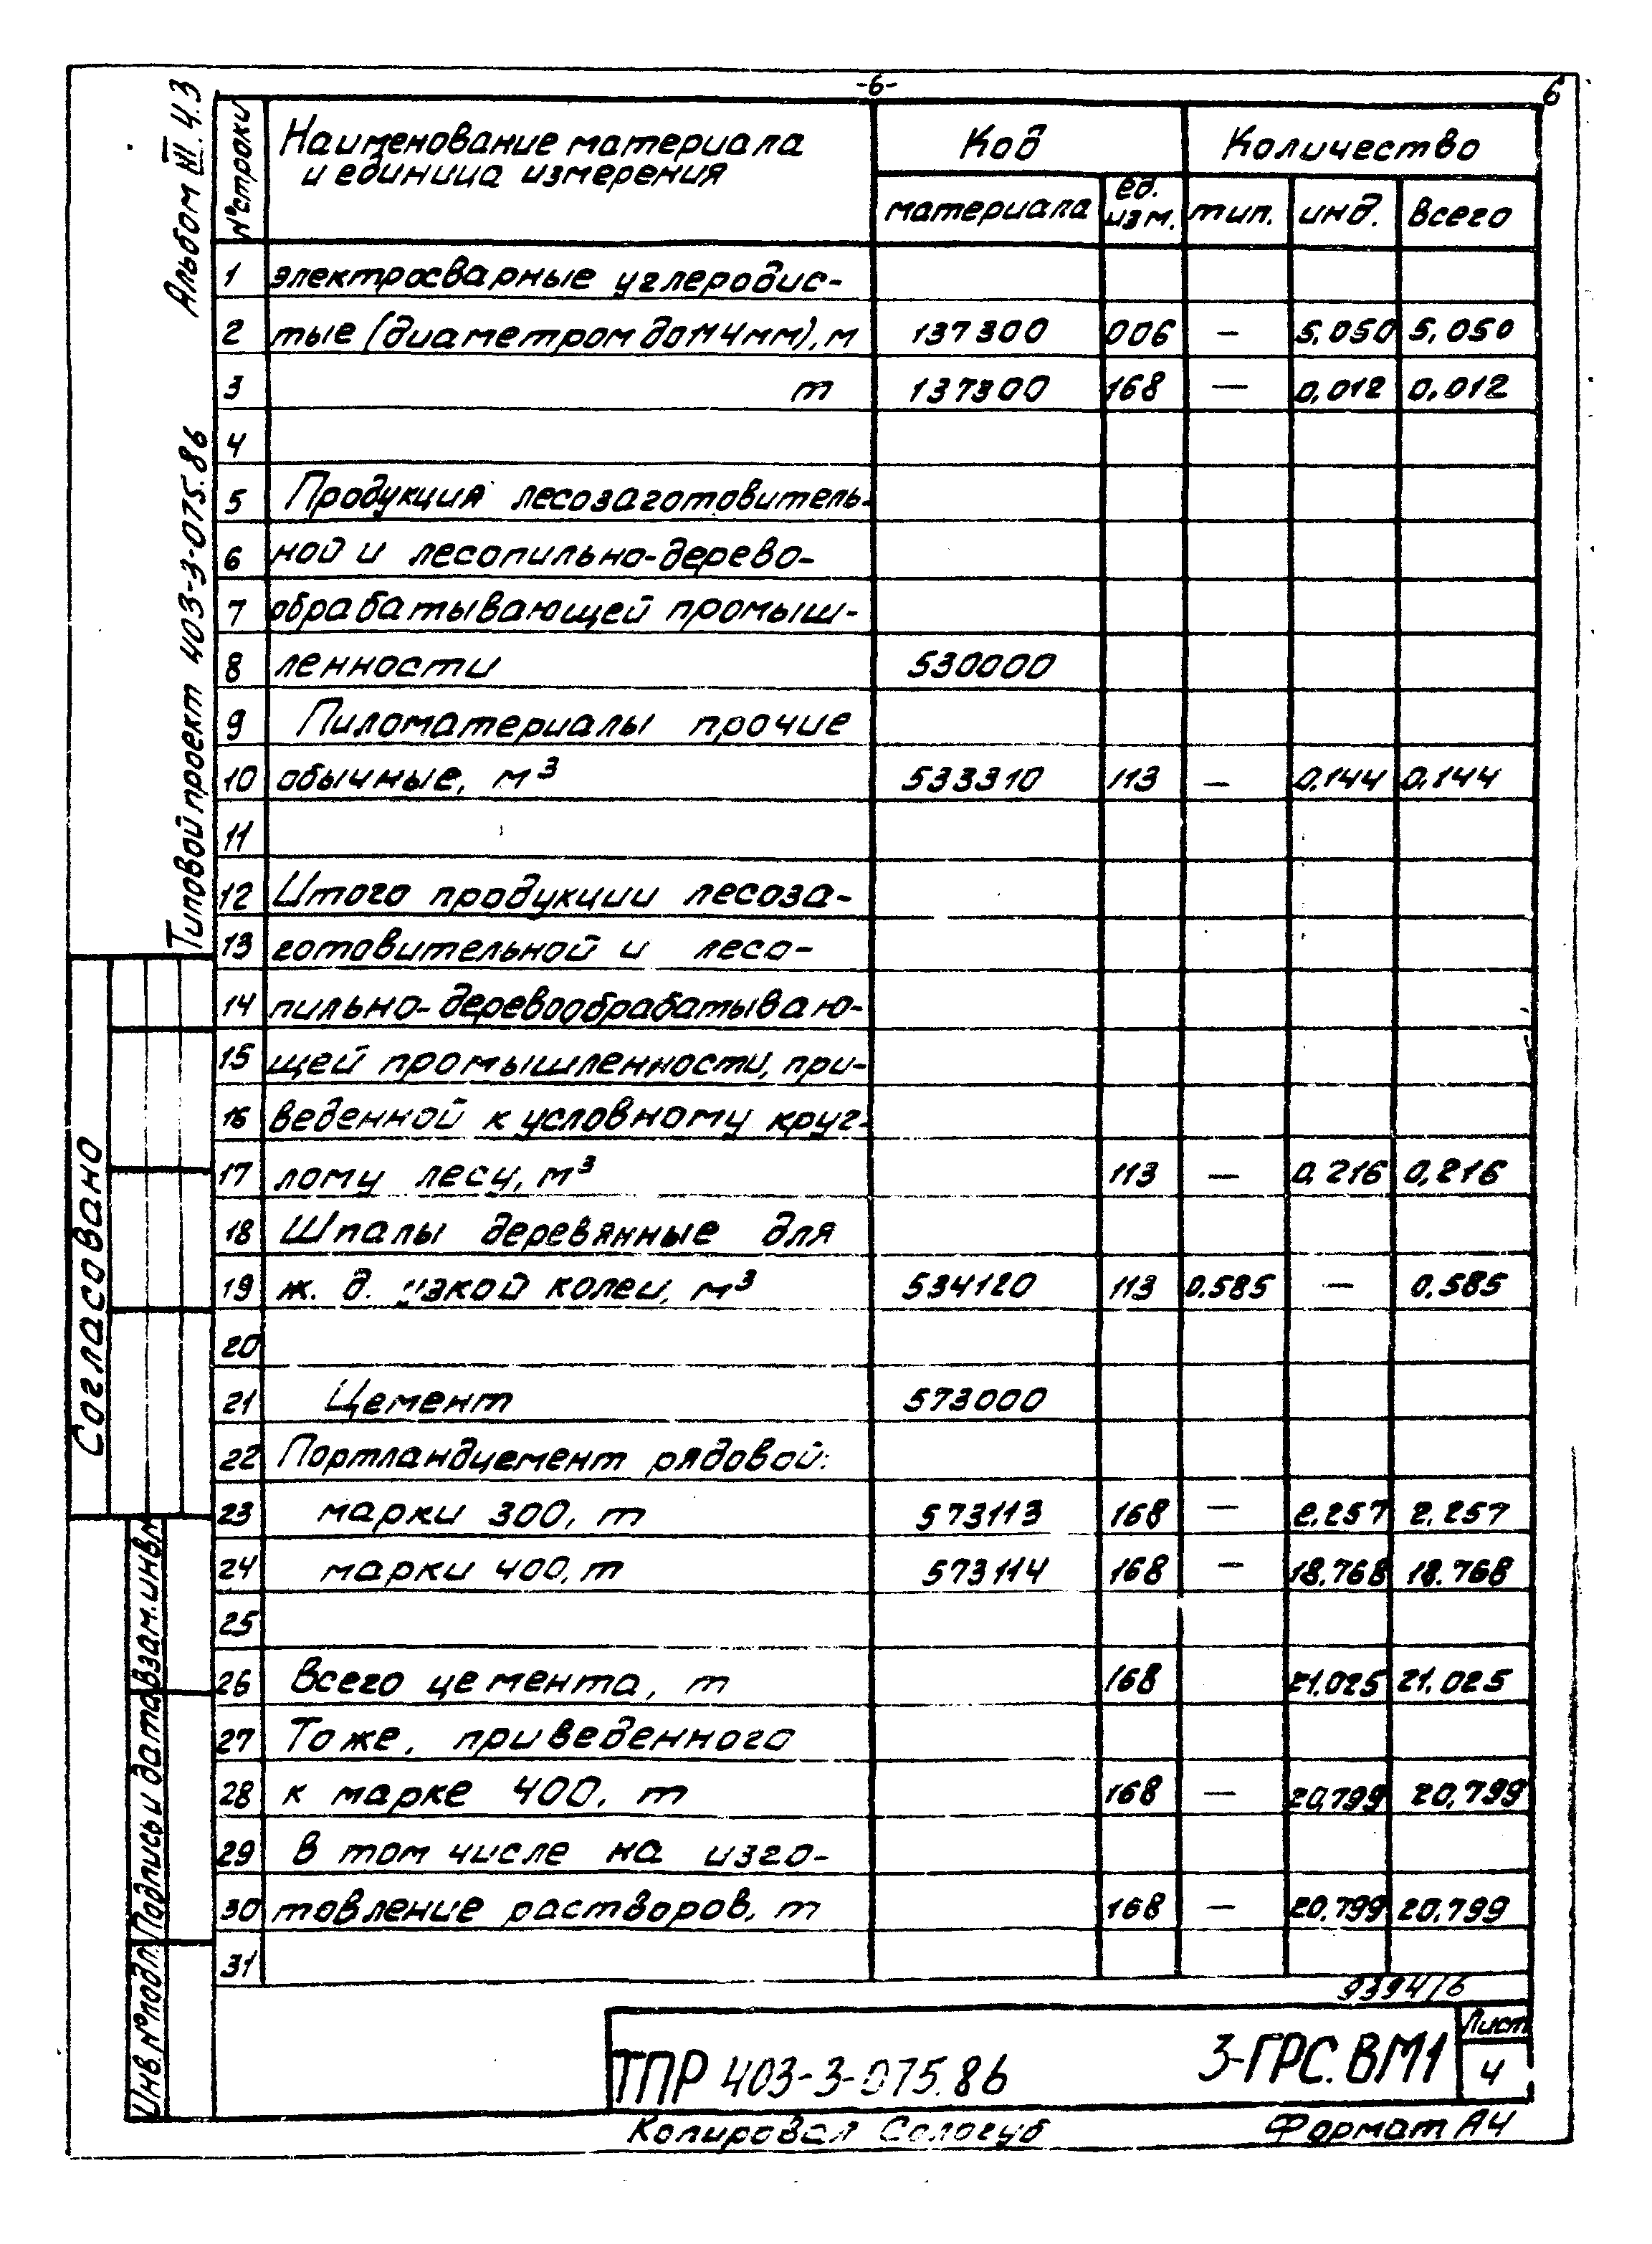 -6-
6
Альбом III.4.3
Типовой проект 403-3-075.86
№ строки
Наименование материала
и единица измерения
Код
Количество
материала
ед.
изм.
тип.
инд.
всего
1 электросварные углеродис-
2 тые (диаметром до 114мм), м 137300 006 — 5,050 5,050
3 т 137300 168 — 0,012 0,012
4
5 Продукция лесозаготовитель-
6 ной и лесопильно-дерево-
7 обрабатывающей промыш-
8 ленности 530000
9 Пиломатериалы прочие
10 обычные, м³ 533310 113 — 0,144 0,144
11
12 Итого продукции лесоза-
13 готовительной и лесо-
14 пильно-деревообрабатываю-
15 щей промышленности, при-
16 веденной к условному круг-
17 лому лесу, м³ 113 — 0,216 0,216
18 Шпалы деревянные для
19 ж. д. узкой колеи, м³ 534120 113 0.585 — 0.585
20
21 Цемент 573000
22 Портландцемент рядовой:
23 марки 300, т 573113 168 — 2.257 2.257
24 марки 400, т 573114 168 — 18.768 18.768
25
26 Всего цемента, т 168 21.025 21.025
27 Тоже, приведенного
28 к марке 400, т 168 — 20,799 20,799
29 в том числе на изго-
30 товление растворов, т 168 — 20,799 20.799
31
Согласовано
Взам. инв. №
Подпись и дата
Инв. № подл.
9394/6
ТПР 403-3-075.86
3-ГРС.ВМ1
Лист
4
Копировал Сологуб
Формат А4